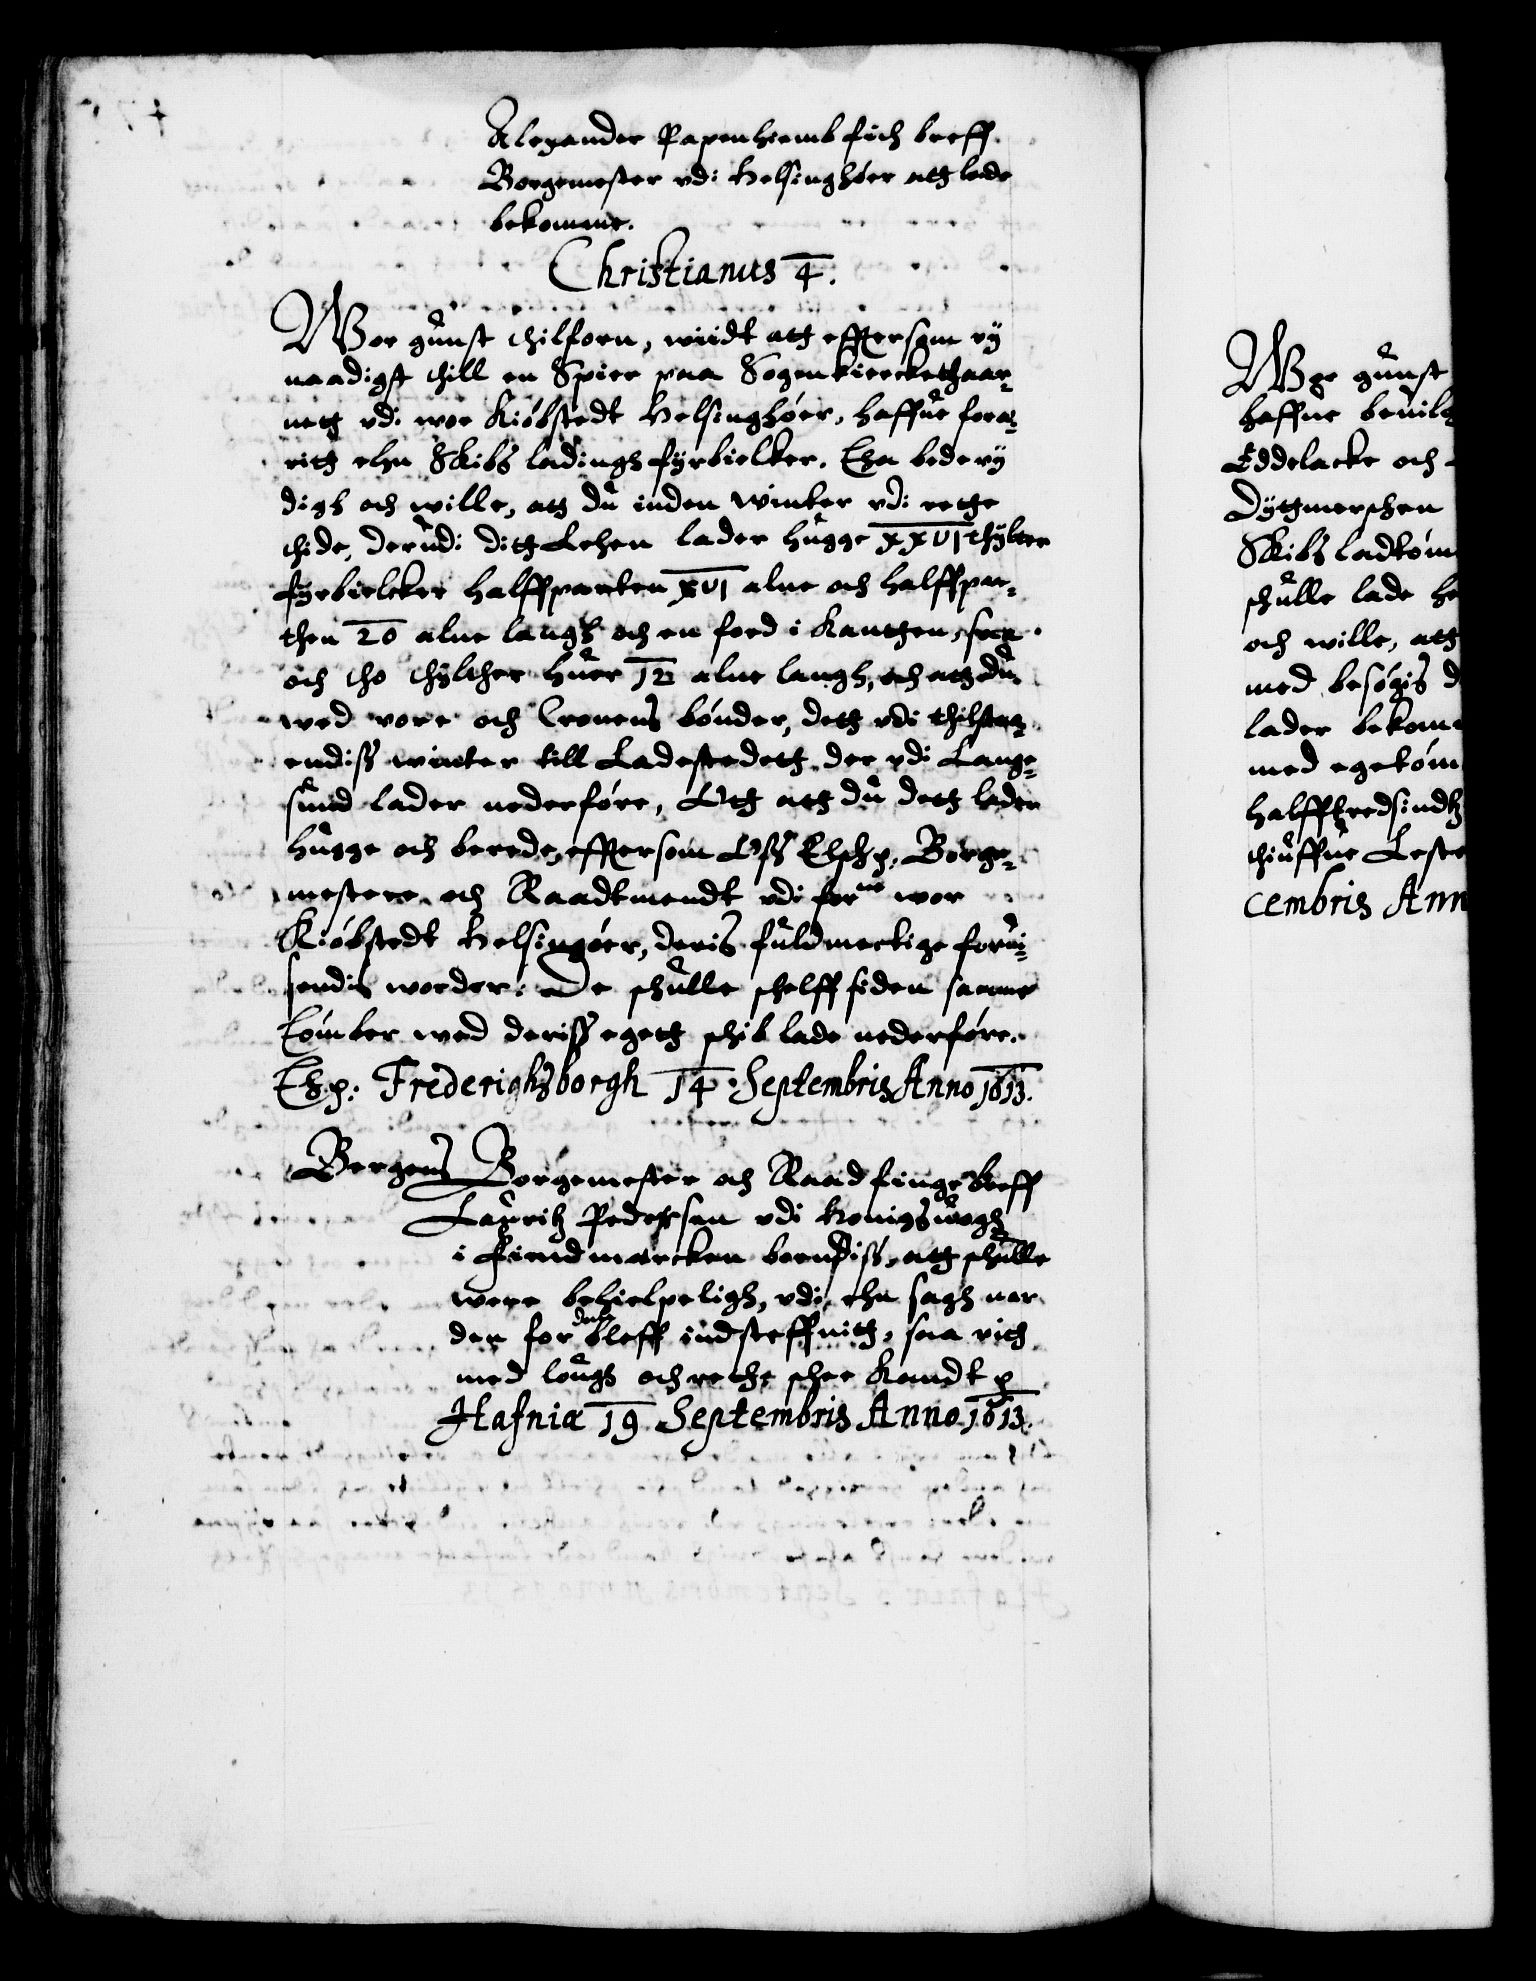 Alexander Papenhiemb fich breff
Borgemester vdi Helsinghöer att lade
bekomme.
Christianus 4.
Wor gunst thilforn, wiidt att effterson vy
naadigst thill en Spier paa Sognkierckethaar-
nett vdi wor Kiöbstedt Helsinghöer, haffue fora-
rith ehn Skibs ladingh fyrbielker. Tha bede vy
digh och wille, att du inden winter vdi rette
thide, derudi dith Lehen lader hugge XXVI thylter
fyrbielcker halffparten XVI alne och halffpar-
then 20 alne langh och en foed i Kantthen, saa
och tho thylther huer 12 alne langh, och att du
wed vore och Cronens bönder, deth vdi thilstaa-
endiss winter till Ladestedeth der vdi Lange-
sund lader nederföre, Och att du deth lader
hugge och berede, efftersom Oss Elsch. Borge-
mestere och Raadtmendt vdi forne wor
Kiöbstedt Helsingöer, deris fuldmectige forui-
sendis worder. De schulle schelff siden samme
tömber wed deriss egeth schib lade nederföre.
Thp: Frederighsborgh 14 Septembris Anno 1613.
Bergens Borgemester och Raad finge breff
Lauritz Pedersen vdi Kongswogh
i Findmarcken boendiss, att schulle
were behielpeligh, vdi ehn sagh nar
den for dem bleff indsteffnith, saa vith
med lough och rethe schee Kandt p
Hafniæ 19 Septembris Anno 1613.
Wor gunst
haffue beuilg
Eddelacke och
Dytgmerschen
Skibs ladtöm
schulle lade he
och wille, att
med besögis d
lader bekom
med egetöm
halfftredsindt
thiuffue Leste
cembris Ann